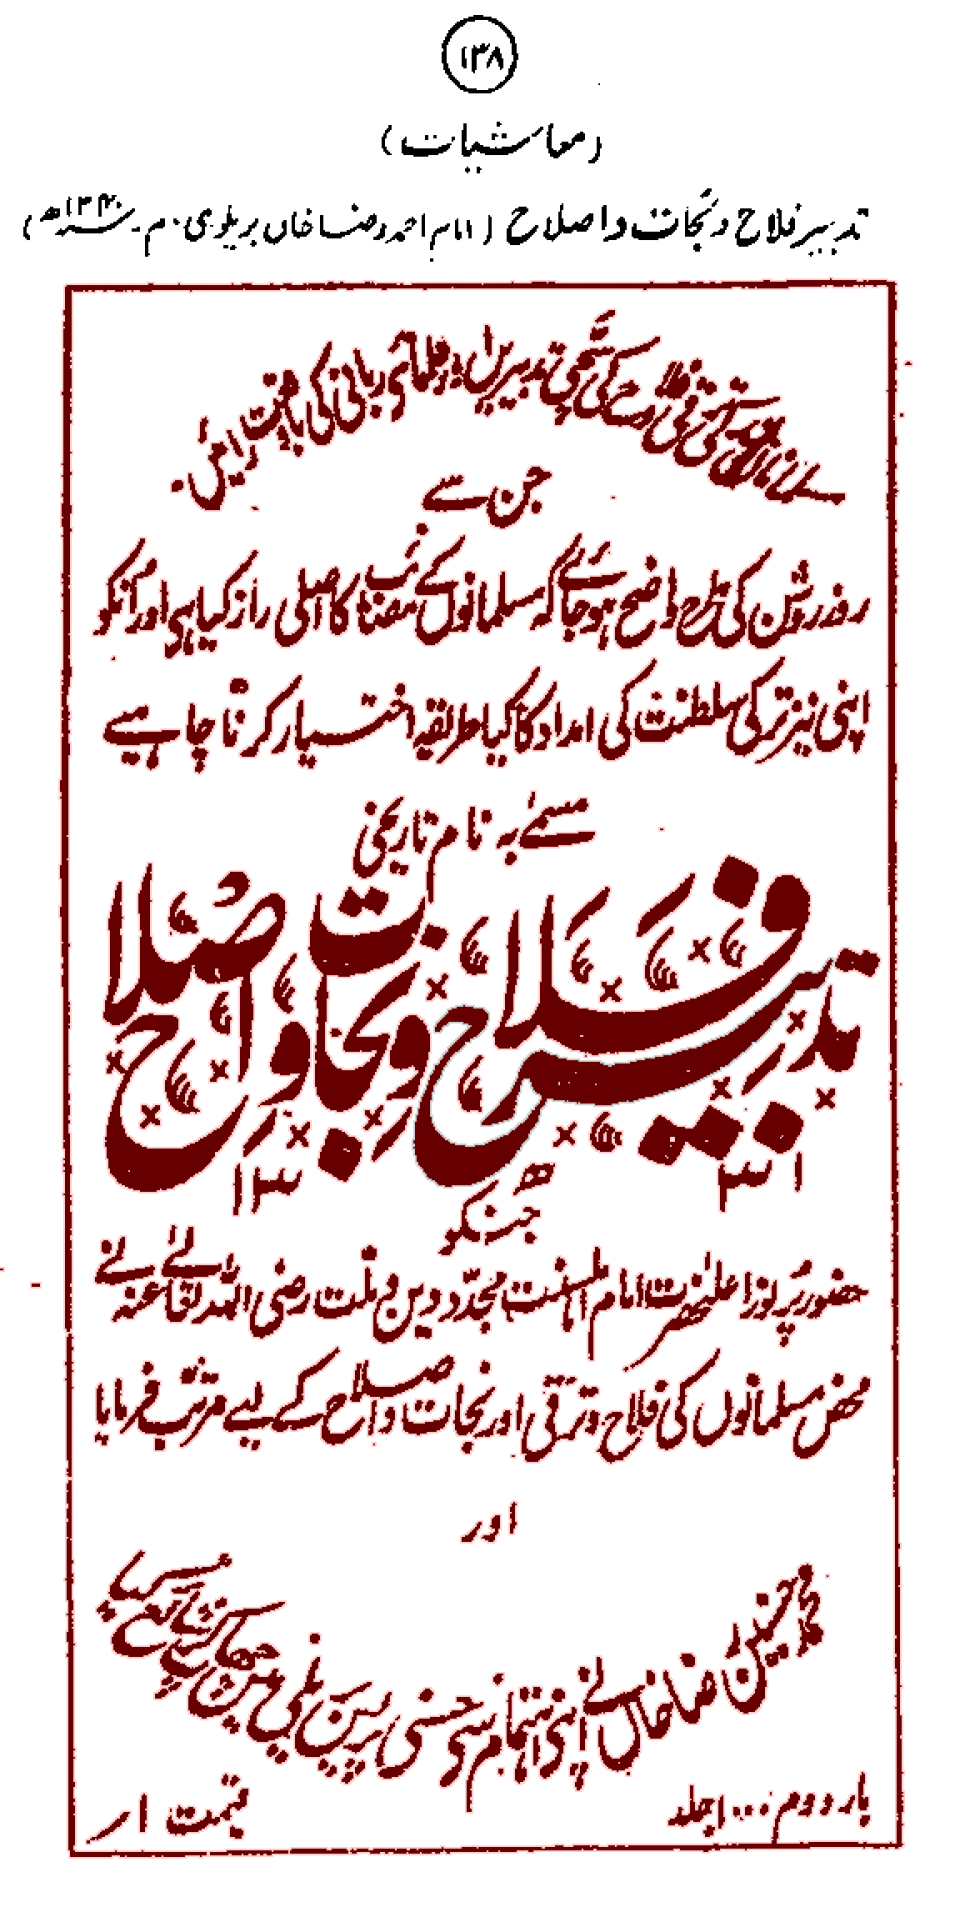 ۱۳۸
(معاشیات)
تدبیر فلاح و نجات و اصلاح (امام احمد رضا خاں بریلوی۔ م۔ ۱۳۴۰ھ)
کی ترقی فلاح کی سچی تدبیریں اور علمائے ربانی کی
جن سے
روز روشن کی طرح واضح ہو جائے گا کہ مسلمانوں کے مصائب کا اصلی راز کیا ہی اور انکو
اپنی نیز ترکی سلطنت کی امداد کا کیا طریقہ اختیار کرنا چاہیے
مسمےٰ بہ نام تاریخی
تدبیر فلاح و نجات و اصلاح
۱۳۳۱ھ
جسکو
حضور پُرنور اعلیٰحضرت امام اہلسنت مجدّد دین و ملّت رضی اللہ تعالےٰ عنہ نے
محض مسلمانوں کی فلاح و ترقی اور نجات و اصلاح کے لیے مرتّب فرمایا
اور
محمد حسنین رضا خاں نے اپنی اہتمام سی حسنی پریس بریلی میں چھاپ کر شائع کیا
بار دوم ۱۰۰۰ جلد
قیمت ۱ر